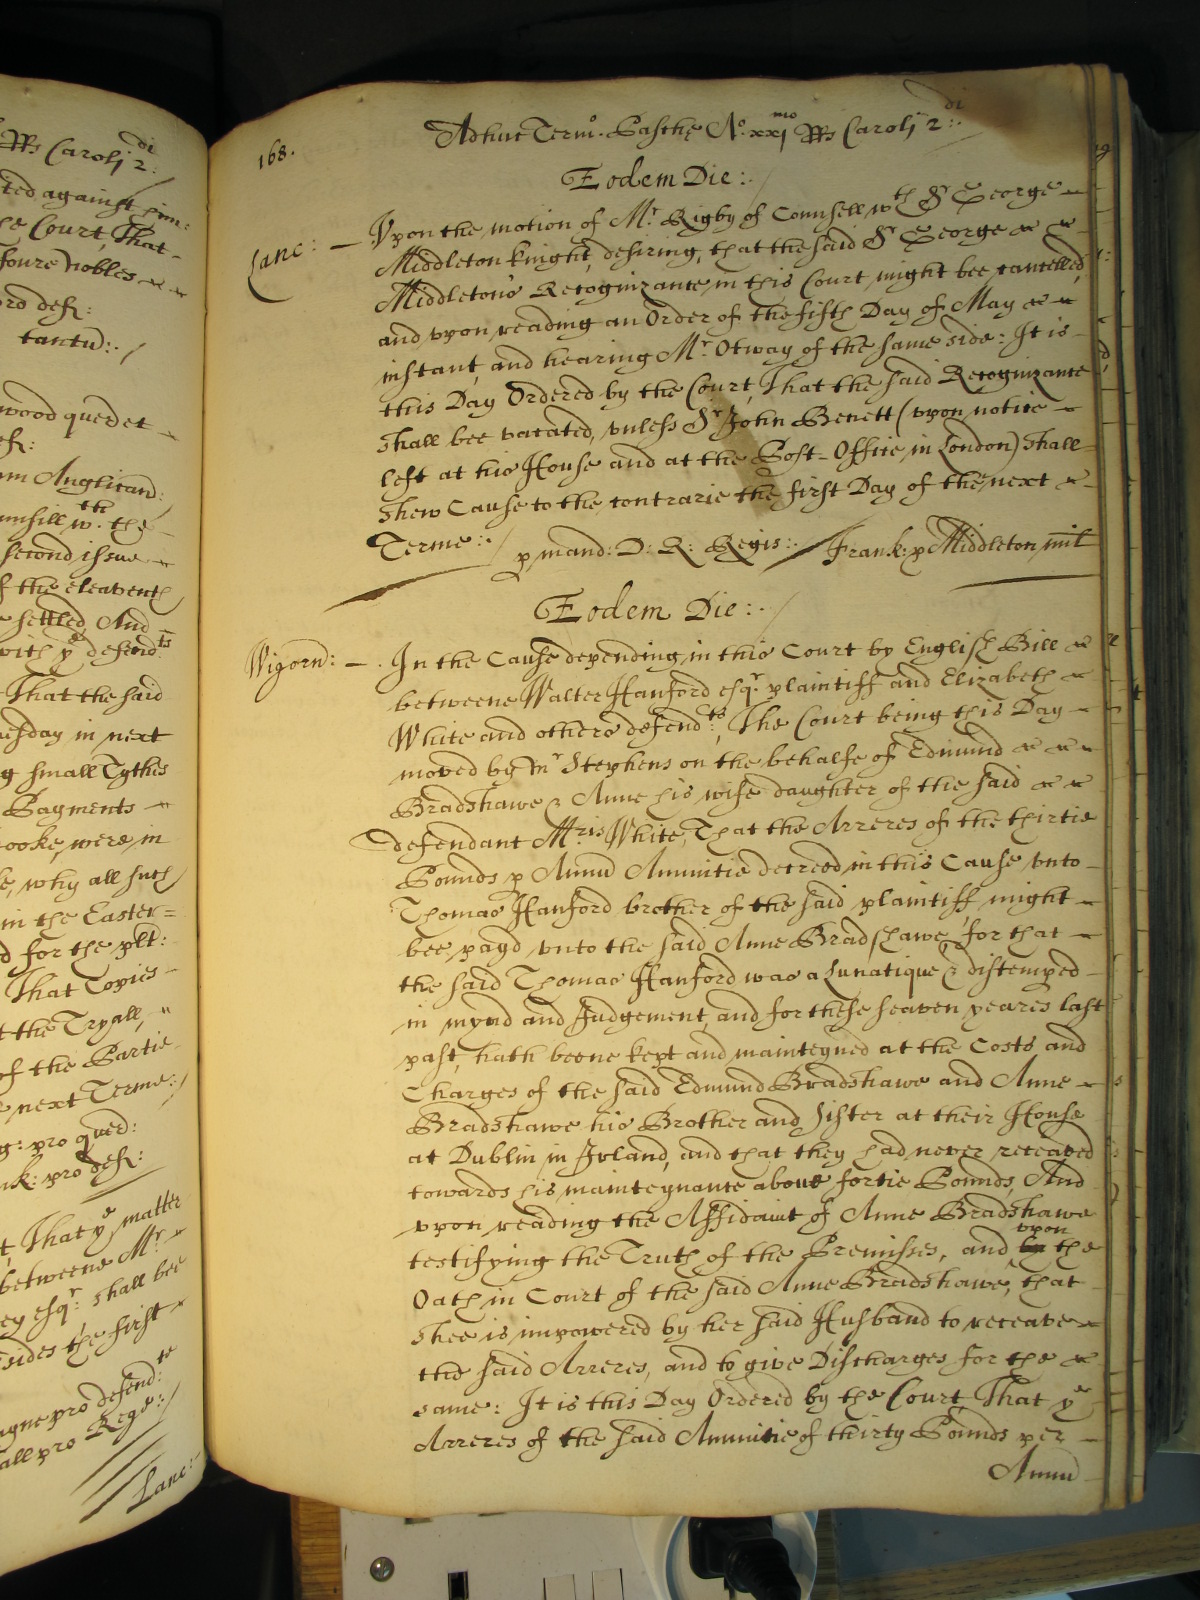 Rs Caroli 2di
ted against
e Court, That
foure nobles
ord def:
tantu:
wood quer et
def:
m Anglican:
unsill wth the
second issue
f the eleaventh
e settled, And
with ye defendts
That the said
uesday in next
g small Tythes
Payments
ooke, were in
e, why all such
in the Easter=
d for the plt:
That Copies
t the Tryall,
of the Partie
e next Terme:
g: pro quer:
nk: pro def:
t, That ye matter
betweene Mr
ey esqr: shall bee
sides the first
agne pro defendte
all pro Rege:
Lanc:
168.
Adhuc Termo. Paschę Ao. xximo Rs Caroli 2di:
Eodem Die:
Lanc: Vpon the motion of Mr Rigby of Counsell wth Sr George
Middleton knight, desiring, that the said Sr George
Middletons Recognizance in this Court might bee cancelled,
and vpon reading an Order of the fifth Day of May
instant, and hearing Mr Otway of the same side: It is
this Day Ordered by the Court, That the said Recognizance
shall bee vacated, vnless Sr John Benett (vpon notice
left at his House and at the Post-Office in London) shall
shew Cause to the contrarie the first Day of the next
Terme: p mand: D: R: Regis: Frank: p Middleton mil
Eodem Die:
Wigorn: In the Cause depending in this Court by English Bill
betweene Walter Hanford esqr. plaintiff and Elizabeth
White and others defendts: The Court being this Day
moved by Mr Stephens on the behalfe of Edmund
Bradshawe & Anne his wife daughter of the said
defendant Mris White, That the Arreres of the thirtie
Pounds p Annu Annuitie decreed in this Cause vnto
Thomas Hanford brother of the said plaintiff might
bee payd vnto the said Anne Bradshawe, for that
the said Thomas Hanford was a Lunatique & distemped
in mynd and Judgement, and for these seaven yeares last
past, hath beene kept and mainteyned at the Costs and
Charges of the said Edmund Bradshawe and Anne
Bradshawe his Brother and Sister at their House
at Dublin in Irland, and that they had never receaved
towards his mainteynance above fortie Pounds, And
vpon reading the Affidavit of Anne Bradshawe
testifying the Truth of the Premisses, and vpon the
Oath in Court of the said Anne Bradshawe, that
shee is impowered by her said Husband to receave
the said Arreres, and to give Discharges for the
same: It is this Day Ordered by the Court, That ye
Arreres of the said Annuitie of thirty Pounds per
Annu